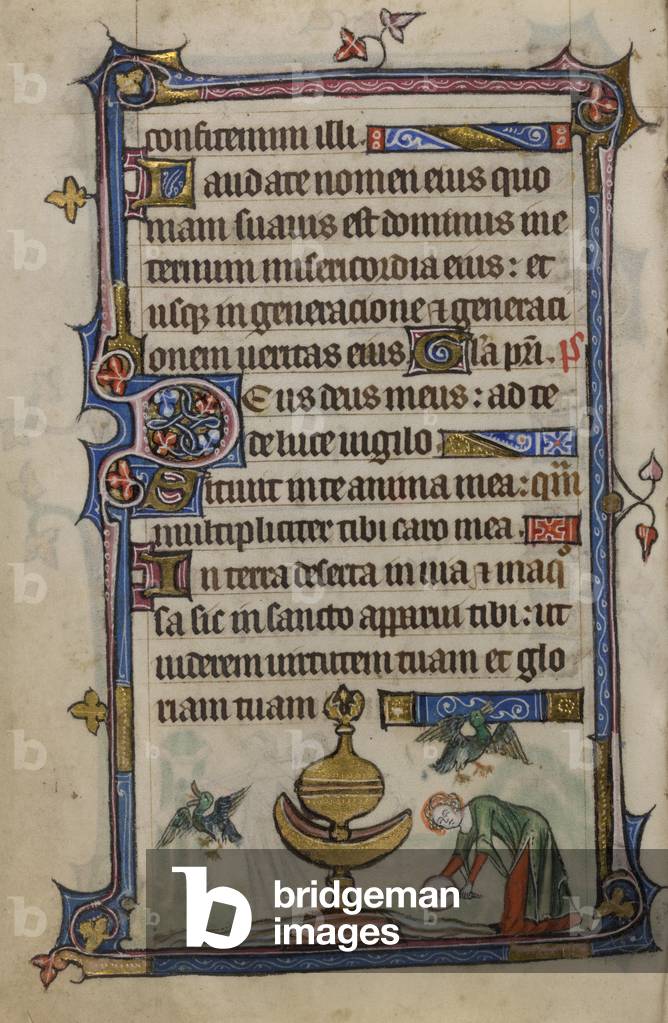 confitemini illi.
Laudate nomen eius quo
niam suauis est dominus in e
ternum misericordia eius: et
usq; in generacione ⁊ generaci
onem ueritas eius Gl'a pr̄i. ps
Deus deus meus: ad te
de luce uigilo
Sitiuit in te anima mea: qm̄
multipliciter tibi caro mea.
In terra deserta in uia ⁊ inaq°
sa sic in sancto apparui tibi: ut
uiderem uirtutem tuam et glo
riam tuam
b bridgeman
images